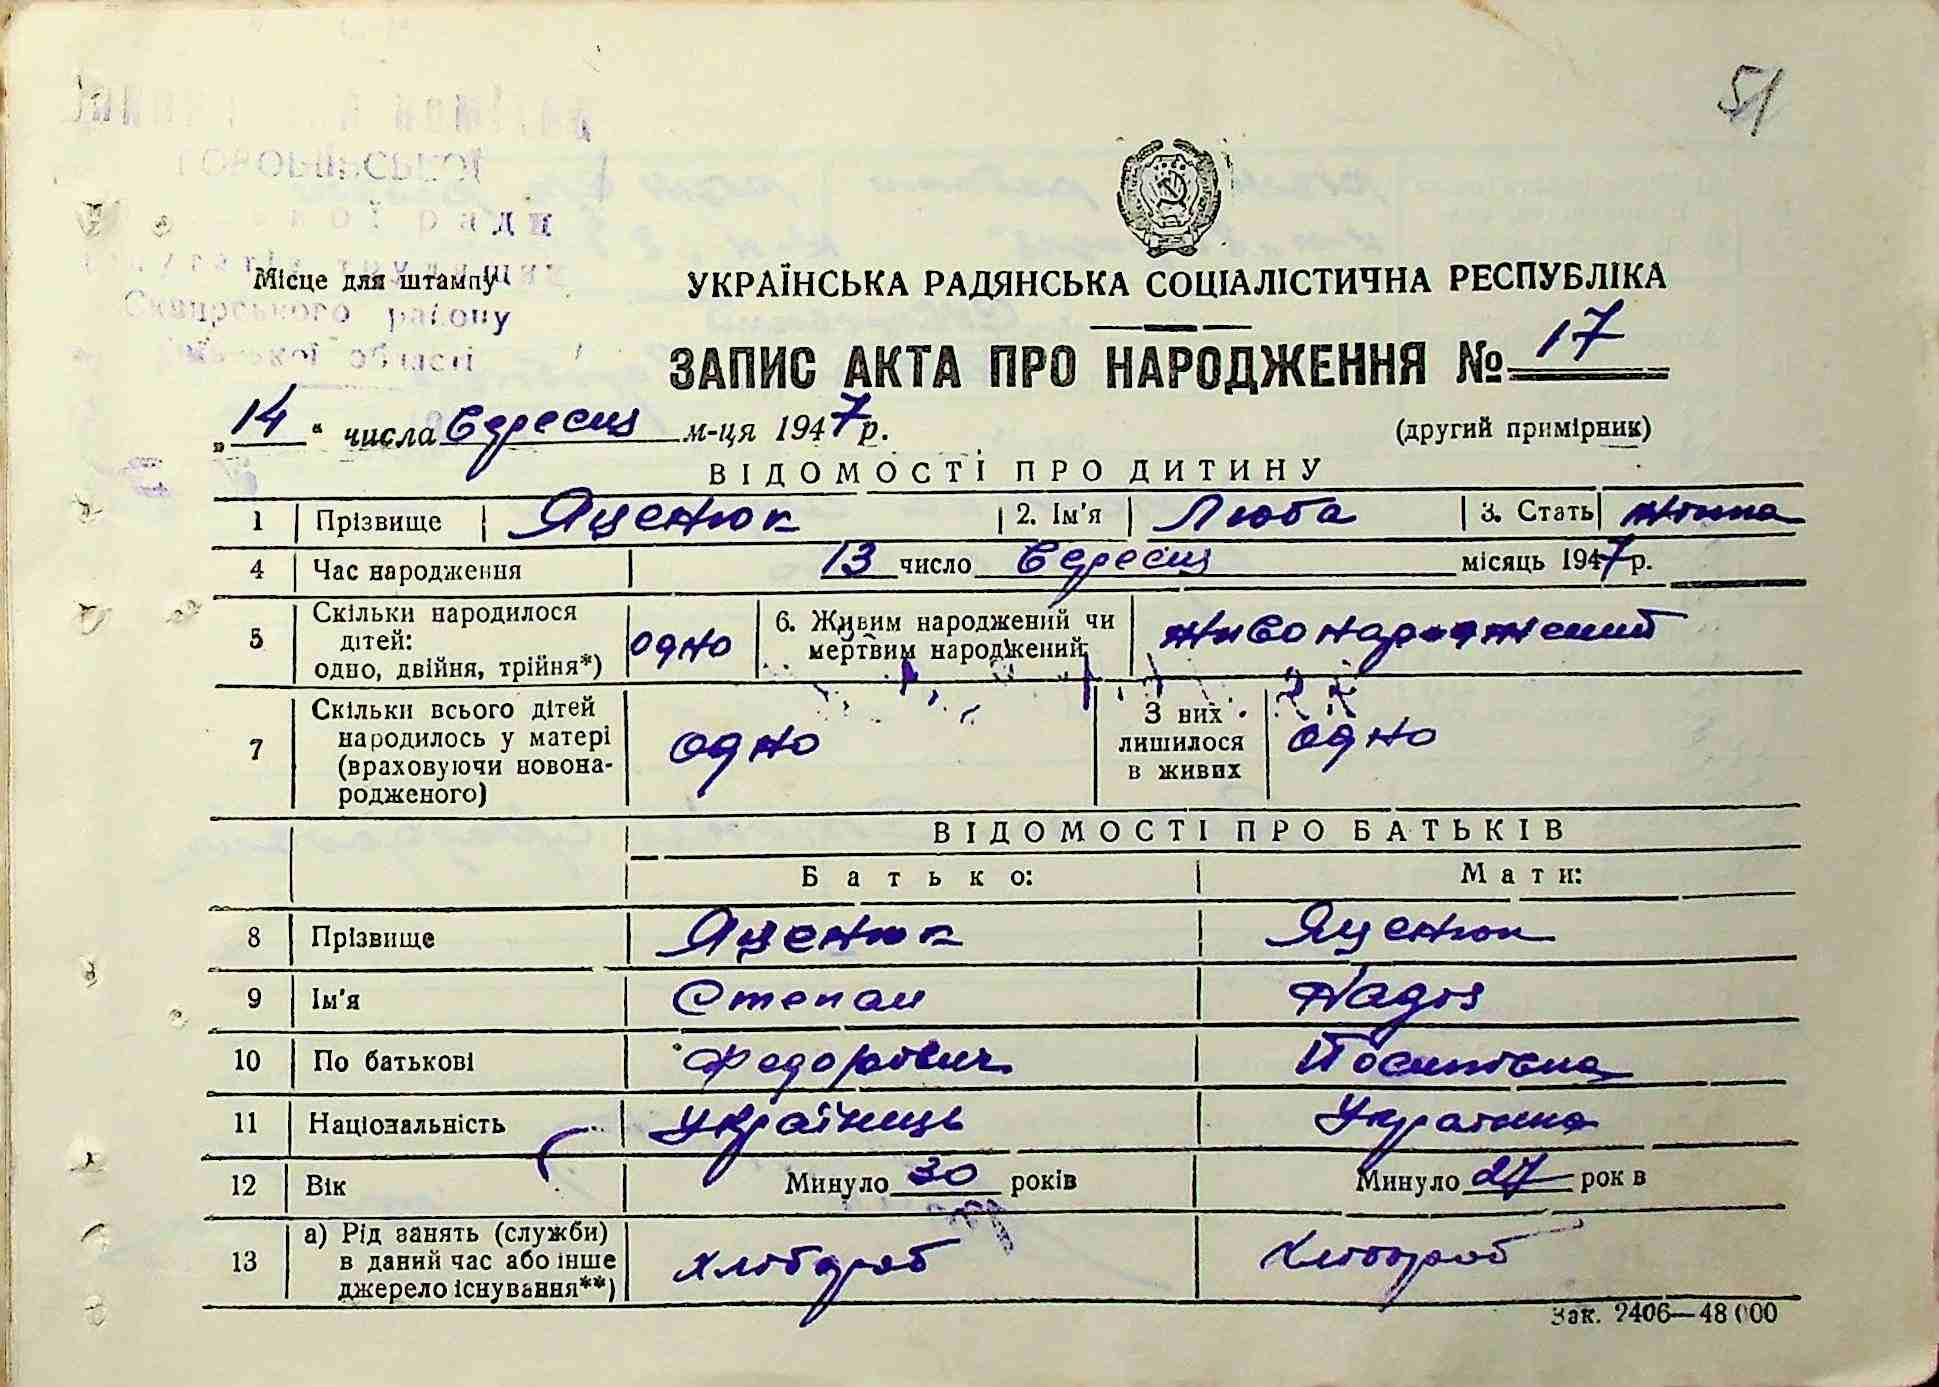 51
ради
Місце для штампу
Сквирського району
області
УКРАЇНСЬКА РАДЯНСЬКА СОЦІАЛІСТИЧНА РЕСПУБЛІКА
ЗАПИС АКТА ПРО НАРОДЖЕННЯ № 17
„14“ числа Вересня м-ця 1947 р.
(другий примірник)
ВІДОМОСТІ ПРО ДИТИНУ
1 Прізвище Яценюк 2. Ім'я Люба 3. Стать
4 Час народження 13 число Вересня місяць 1947 р.
5 Скільки народилося дітей: одно, двійня, трійня*) одно 6. Живим народжений чи мертвим народжений живонароджений
7 Скільки всього дітей народилось у матері (враховуючи новонародженого) одно З них лишилося в живих одно
ВІДОМОСТІ ПРО БАТЬКІВ
Батько: Мати:
8 Прізвище Яценюк Яценюк
9 Ім'я Степан Надія
10 По батькові Федорович Йосипівна
11 Національність Українець Українка
12 Вік Минуло 30 років Минуло 27 рок в
13 а) Рід занять (служби) в даний час або інше джерело існування**) хлібороб хлібороб
Зак. 2406—48 000